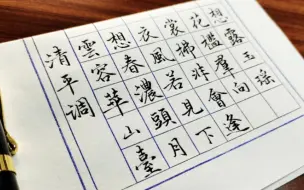 清平调
雲想衣裳花想
容春風拂檻露
華濃若非羣玉
山頭見會向瑶
臺月下逢